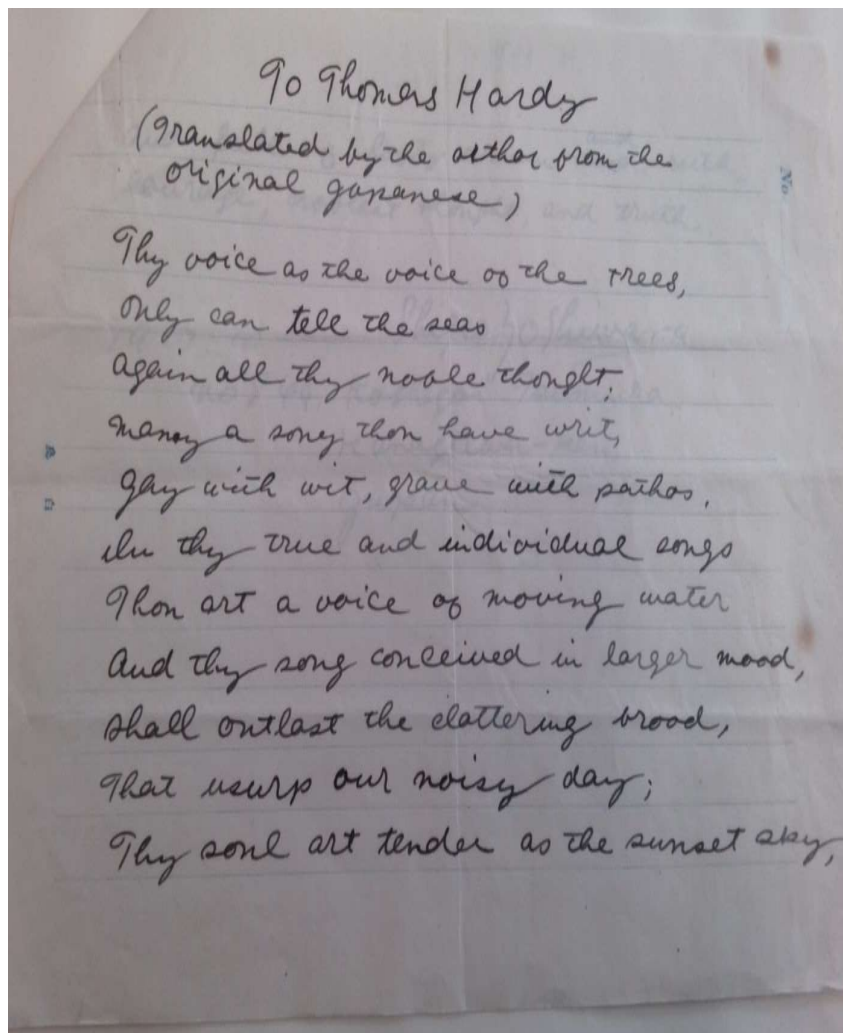 To Thomas Hardy
(Translated by the author from the
original Japanese)
Thy voice as the voice of the trees,
Only can tell the seas
Again all thy noble thought;
Many a song thou have writ,
Gay with wit, grave with pathos.
In thy true and individual songs
Thou art a voice of moving water
And thy song conceived in larger mood,
Shall outlast the clattering brood,
That usurp our noisy day;
Thy soul art tender as the sunset sky,
No.